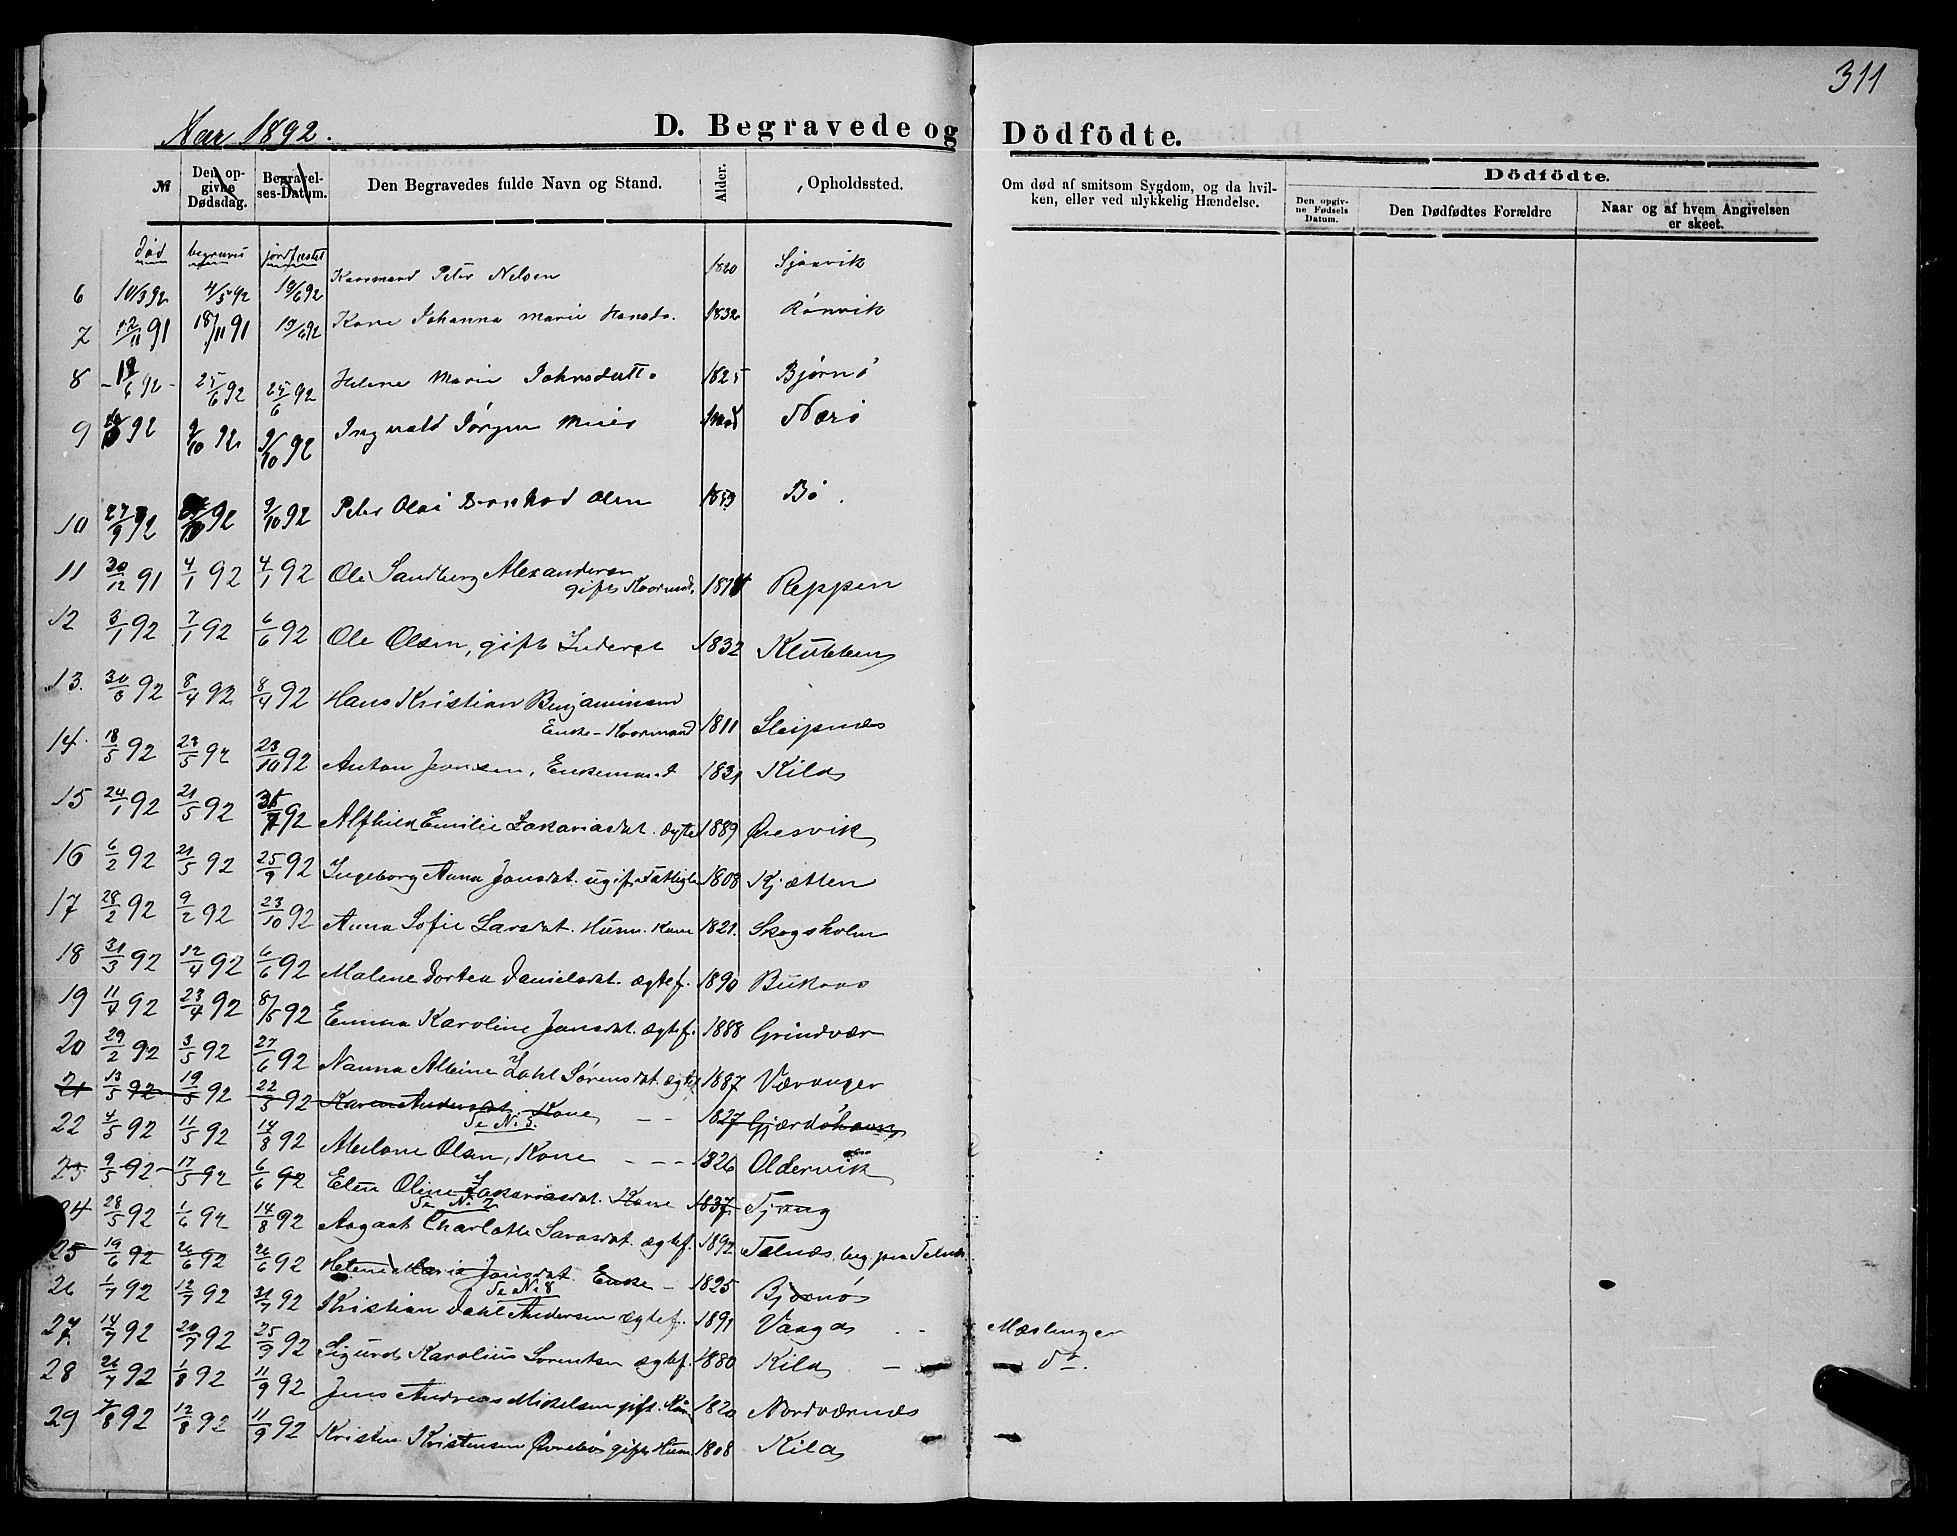 311
Aar 1892.
D. Begravede og Dödfödte.
№
Den opgivne Dødsdag.
Begravelses-Datum.
Den Begravedes fulde Navn og Stand.
Alder.
Opholdssted.
Om død af smitsom Sygdom, og da hvilken, eller ved ulykkelig Hændelse.
Dödfödte.
Den opgivne Fødsels Datum.
Den Dødfødtes Forældre
Naar og af hvem Angivelsen er skeet.
død begravet jordfæstet
6 10/3 92 4/5 92 19/6 92 Kaarmand Peter Nelsen 1820 Sjonvik
7 12/11 91 18/11 91 19/6 92 Kone Johanna Marie Hansd. 1832 Rønvik
8 18/6 92 25/6 92 25/6 92 Helene Marie Johnsdatt. 1825 Bjørnø
9 92 9/10 92 9/10 92 Ingvald Jørgen Nærø
10 27/9 92 92 9/10 92 Peter Olai Olsen Bø.
11 30/12 91 4/1 92 4/1 92 Ole Sandberg Alexandersen
gift Kaarmand. Reppen
12 3/1 92 7/1 92 6/6 92 Ole Olsen, gift Inderst 1832 Klubben
13. 30/3 92 8/4 92 8/4 92 Hans Kristian Benjaminsen
Enke-Kaarmand 1811 Sleipnes
14. 18/5 92 23/5 92 23/10 92 Anton Jensen, Enkemand 1831 Kila
15 24/1 92 21/5 92 92 Alfhild Emilie Zakariasdat. ægte 1889 Øresvik
16 6/2 92 21/5 92 25/9 92 Ingeborg Anna Jonsdat. ugift Fattigl 1808 Kjætten
17 28/2 92 9/2 92 23/10 92 Anna Sofie Larsdat. Husm. Kone 1821. Skogsholm
18 31/3 92 12/4 92 6/6 92 Malene Dortea Danielsdat. ægtef. 1890
19 11/4 92 23/4 92 8/5 92 Emma Karoline Jensdat. ægtef. 1888 Grindvær
20 29/2 92 3/5 92 27/6 92 Nanna Albine Zahl Sørensdat. ægtef 1887 Væranger
21 13/5 92 19/5 92 22/5 92 Karen Andersdat. Kone 1827
Se N. 5.
22 4/5 92 11/5 92 14/8 92 Olsen, Kone 1826 Oldervik
23 9/5 92 17/5 92 6/6 92 Elen Oline Zakariasdat. Kone 1837 Tjong
Se N. 2
24 28/5 92 1/6 92 14/8 92 Aagaat Charlotte Larasdat. ægtef. 1892 Telnæs, beg. paa Telnæs
25 19/6 92 26/6 92 26/6 92 Helene Maria Jonsdat. Enke 1825 Bjørnø
Se N. 8
26 1/7 92 12/7 92 31/7 92 Kristian Dahl Andersen ægtef. 1891 Vaaga Mæslinger
27 14/7 92 20/7 92 25/9 92 Sigurd Karolius Lorentsen ægtef. 1880 Kila - do.
28 26/7 92 1/8 92 11/9 92 Jens Andreas Mikelsen gift. 1820 Nordværnes
29 7/8 92 12/8 92 11/9 92 Kristen Kristensen Øvrebø gift Husm. 1808 Kila